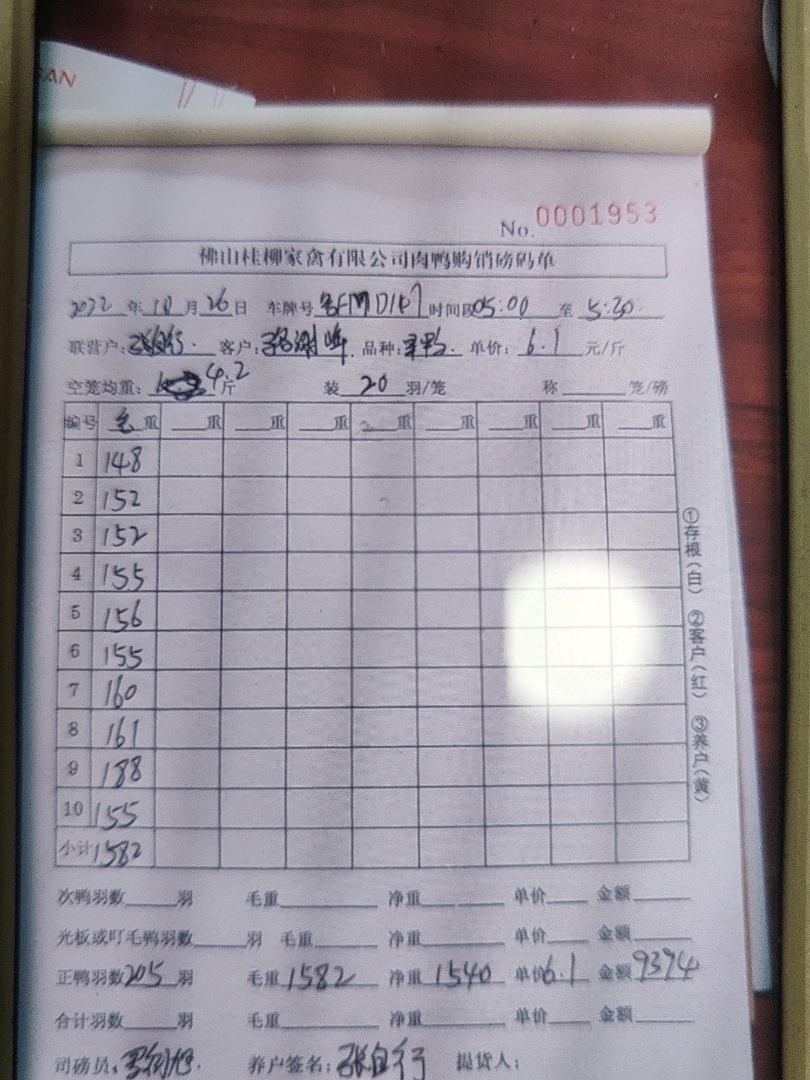 No. 0001953
佛山桂柳家禽有限公司肉鸭购销磅码单
2022年10月26日 车牌号 时间段05:00至5:30.
联营户: 客户: 品种: 单价: 6.1元/斤
空笼均重: 4.2斤 装20羽/笼 称 笼/磅
编号 毛重 重 重 重 重 重 重 重 重
1 148
2 152
3 152
4 155
5 156
6 155
7 160
8 161
9 188
10 155
小计 1582
次鸭羽数 羽 毛重 净重 单价 金额
光板或叮毛鸭羽数 羽 毛重 净重 单价 金额
正鸭羽数205羽 毛重1582 净重1540 单价6.1 金额9394
合计羽数 羽 毛重 净重 单价 金额
司磅员: 养户签名: 张自行 提货人:
①存根(白) ②客户(红) ③养户(黄)